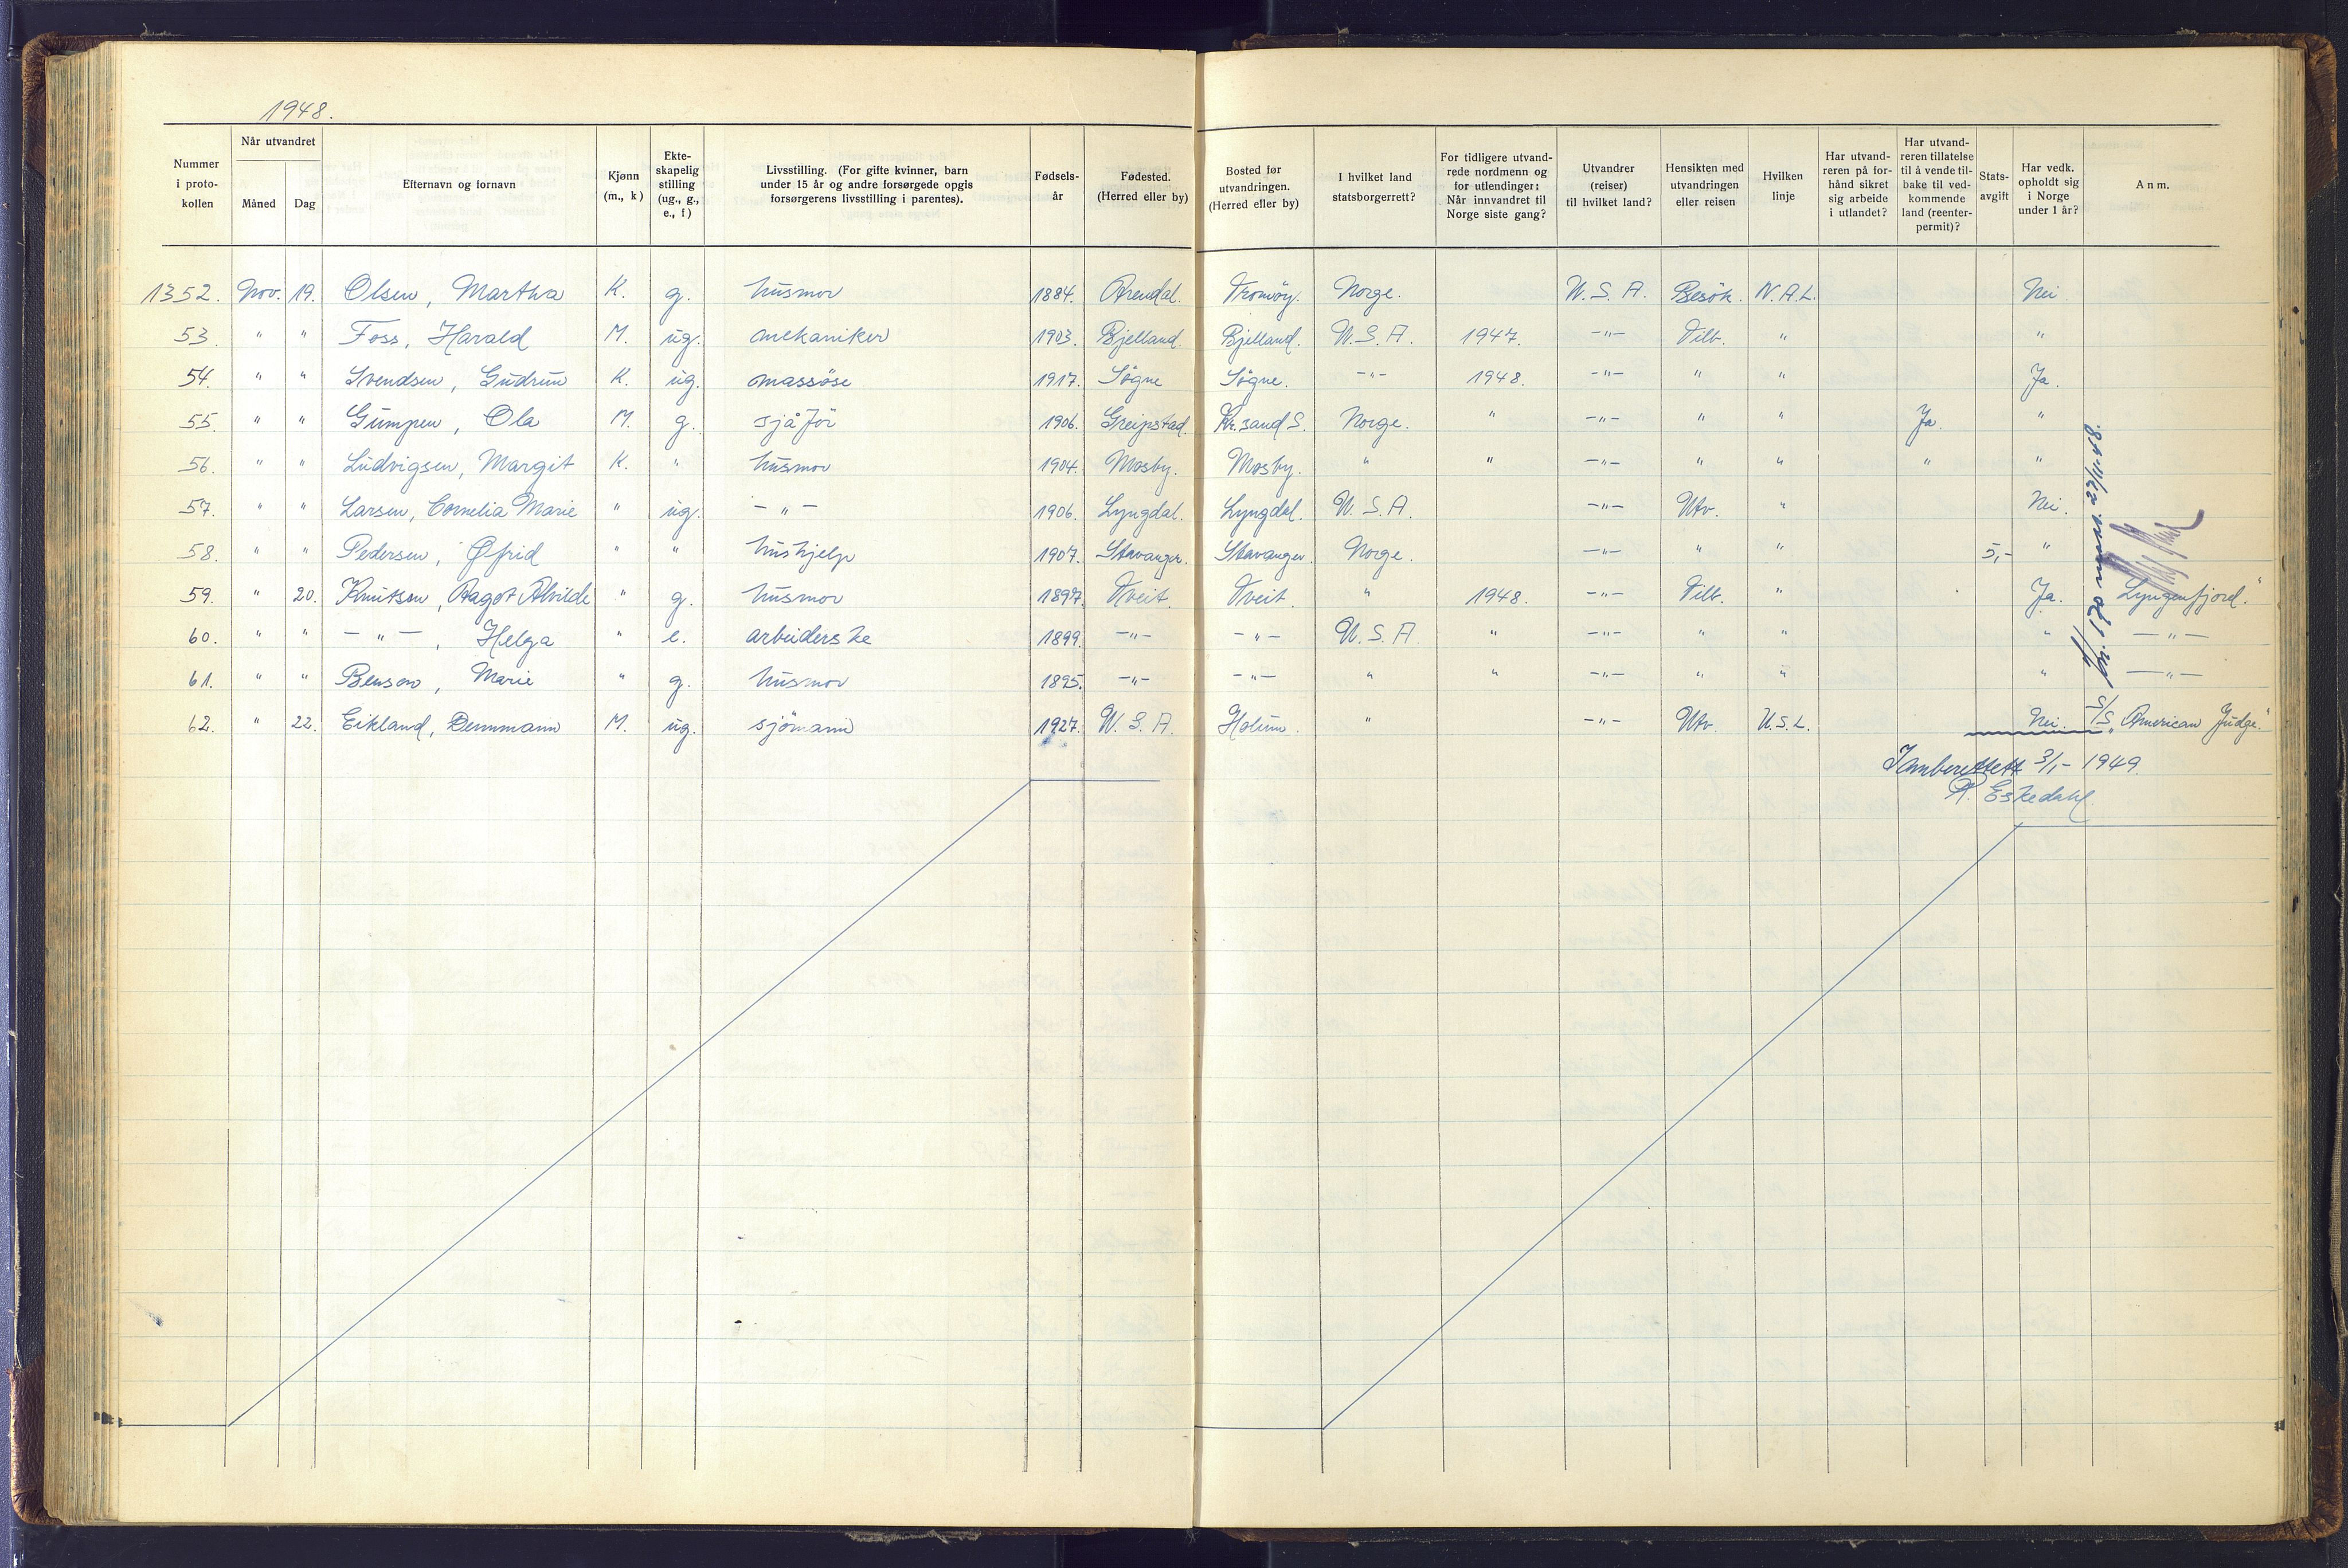 1948.
Nummer i proto-kollen | Når utvandret Måned Dag | Efternavn og fornavn | Kjønn (m., k) | Ekte-skapelig stilling (ug., g., e., f) | Livsstilling. (For gifte kvinner, barn under 15 år og andre forsørgede opgis forsørgerens livsstilling i parentes). | Fødsels-år | Fødested. (Herred eller by) | Bosted før utvandringen. (Herred eller by) | I hvilket land statsborgerrett? | For tidligere utvand-rede nordmenn og for utlendinger: Når innvandret til Norge siste gang? | Utvandrer (reiser) til hvilket land? | Hensikten med utvandringen eller reisen | Hvilken linje | Har utvand-reren på for-hånd sikret sig arbeide i utlandet? | Har utvand-reren tillatelse til å vende til-bake til ved-kommende land (reenter-permit)? | Stats-avgift | Har vedk. opholdt sig i Norge under 1 år? | Anm.
1352. Nov. 19. Olsen, Martha K. g. husmor 1884. Arendal. Tromöy. Norge. U.S.A. Besök. N.A.L. Nei.
53. " " Foss, Harald M. ug. mekaniker 1903. Bjelland. Bjelland. U.S.A. 1947. -"- Tilb. " "
54. " " Svendsen, Gudrun K. ug. massöse 1917. Sögne Sögne. -"- 1948. -"- " " Ja.
55. " " Gumpen, Ola M. g. sjåför 1906. Greipstad. Kr.sand S. Norge. " -"- " " Ja. "
56. " " Ludvigsen, Margit K. " husmor 1904. Mosby. Mosby. " " -"- " " " "
57. " " Larsen, Cornelia Marie " ug. -"- 1906. Lyngdal. Lyngdal. U.S.A. -"- Utv. " Nei.
58. " " Pedersen, Øfrid " " hushjelp 1907. Stavanger. Stavanger. Norge. -"- " " 5,- "
59. " 20. Knutsen, Aagot Alvilde " g. husmor 1897. Tveit. Tveit. " 1948. -"- Tilb. " Ja. "Lyngenfjord."
60. " " -"-, Helga " e. arbeiderske 1899. -"- -"- U.S.A. " -"- " " " -"-
61. " " Benson, Marie " g. husmor 1895. -"- -"- " " -"- " " " -"-
62. " 22. Eikland, Denmann M. ug. sjömann 1927. U.S.A. Holum. " -"- Utv. U.S.L. Nei. S/S "American Judge."
22/11-48.
Innberettett 3/1- 1949.
A. Eskedahl